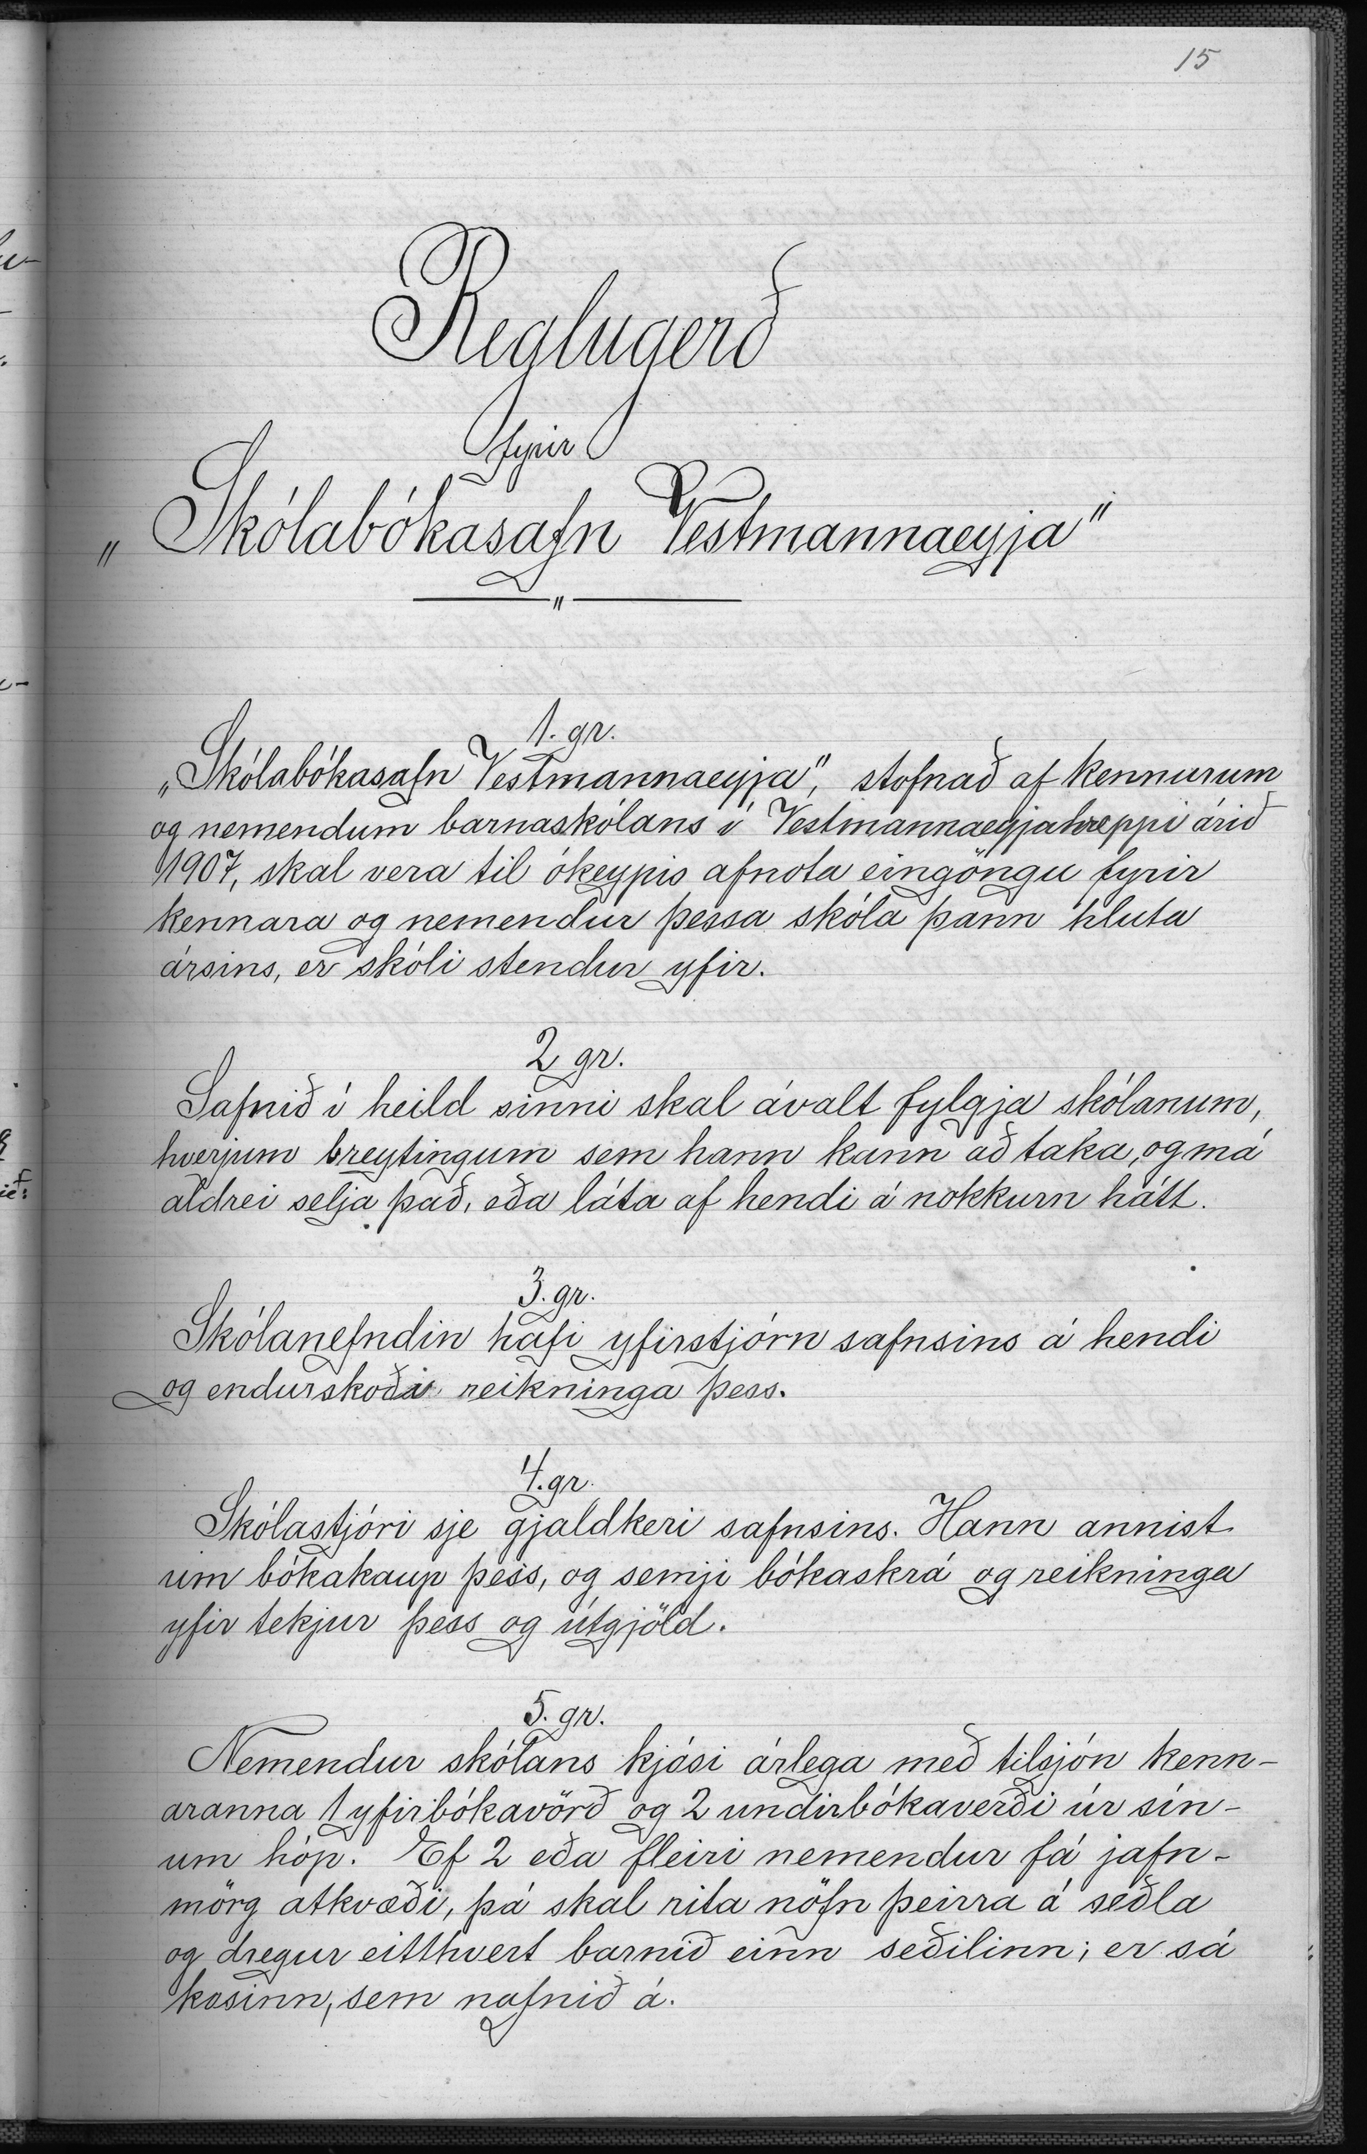 15
Reglugerð
fyrir
„Skólabókasafn Vestmannaeyja"
1. gr.
„Skólabókasafn Vestmannaeyja", stofnað af kennurum
og nemendum barnaskólans í Vestmannaeyjahreppi árið
1907, skal vera til ókeypis afnota eingöngu fyrir
kennara og nemendur þessa skóla þann hluta
ársins, er skóli stendur yfir.
2 gr.
Safnið í heild sinni skal ávalt fylgja skólanum,
hverjum breytingum sem hann kann að taka, og má
aldrei selja það, eða láta af hendi á nokkurn hátt.
3. gr.
Skólanefndin hafi yfirstjórn safnsins á hendi
og endurskoði reikninga þess.
4. gr.
Skólastjóri sje gjaldkeri safnsins. Hann annist
um bókakaup þess, og semji bókaskrá og reikninga
yfir tekjur þess og útgjöld.
5. gr.
Nemendur skólans kjósi árlega með tilsjón kenn-
aranna 1 yfirbókavörð og 2 undirbókaverði úr sín-
um hóp. Ef 2 eða fleiri nemendur fá jafn-
mörg atkvæði, þá skal rita nöfn þeirra á seðla
og dregur eitthvert barnið einn seðilinn; er sá
kosinn, sem nafnið á.